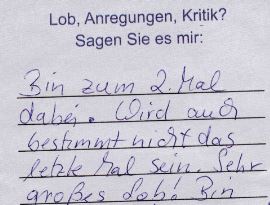 Lob, Anregungen, Kritik?
Sagen Sie es mir:
Bin zum 2. Mal
dabei. Wird auch
bestimmt nicht das
letzte Mal sein. Sehr
großes Lob! Bin